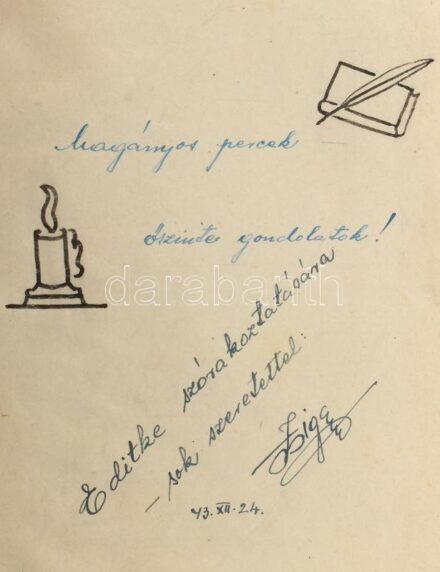 Magányos percek –
őszinte gondolatok!
darabanth
Editke szórakoztatására
– sok szeretettel:
43. XII. 24.